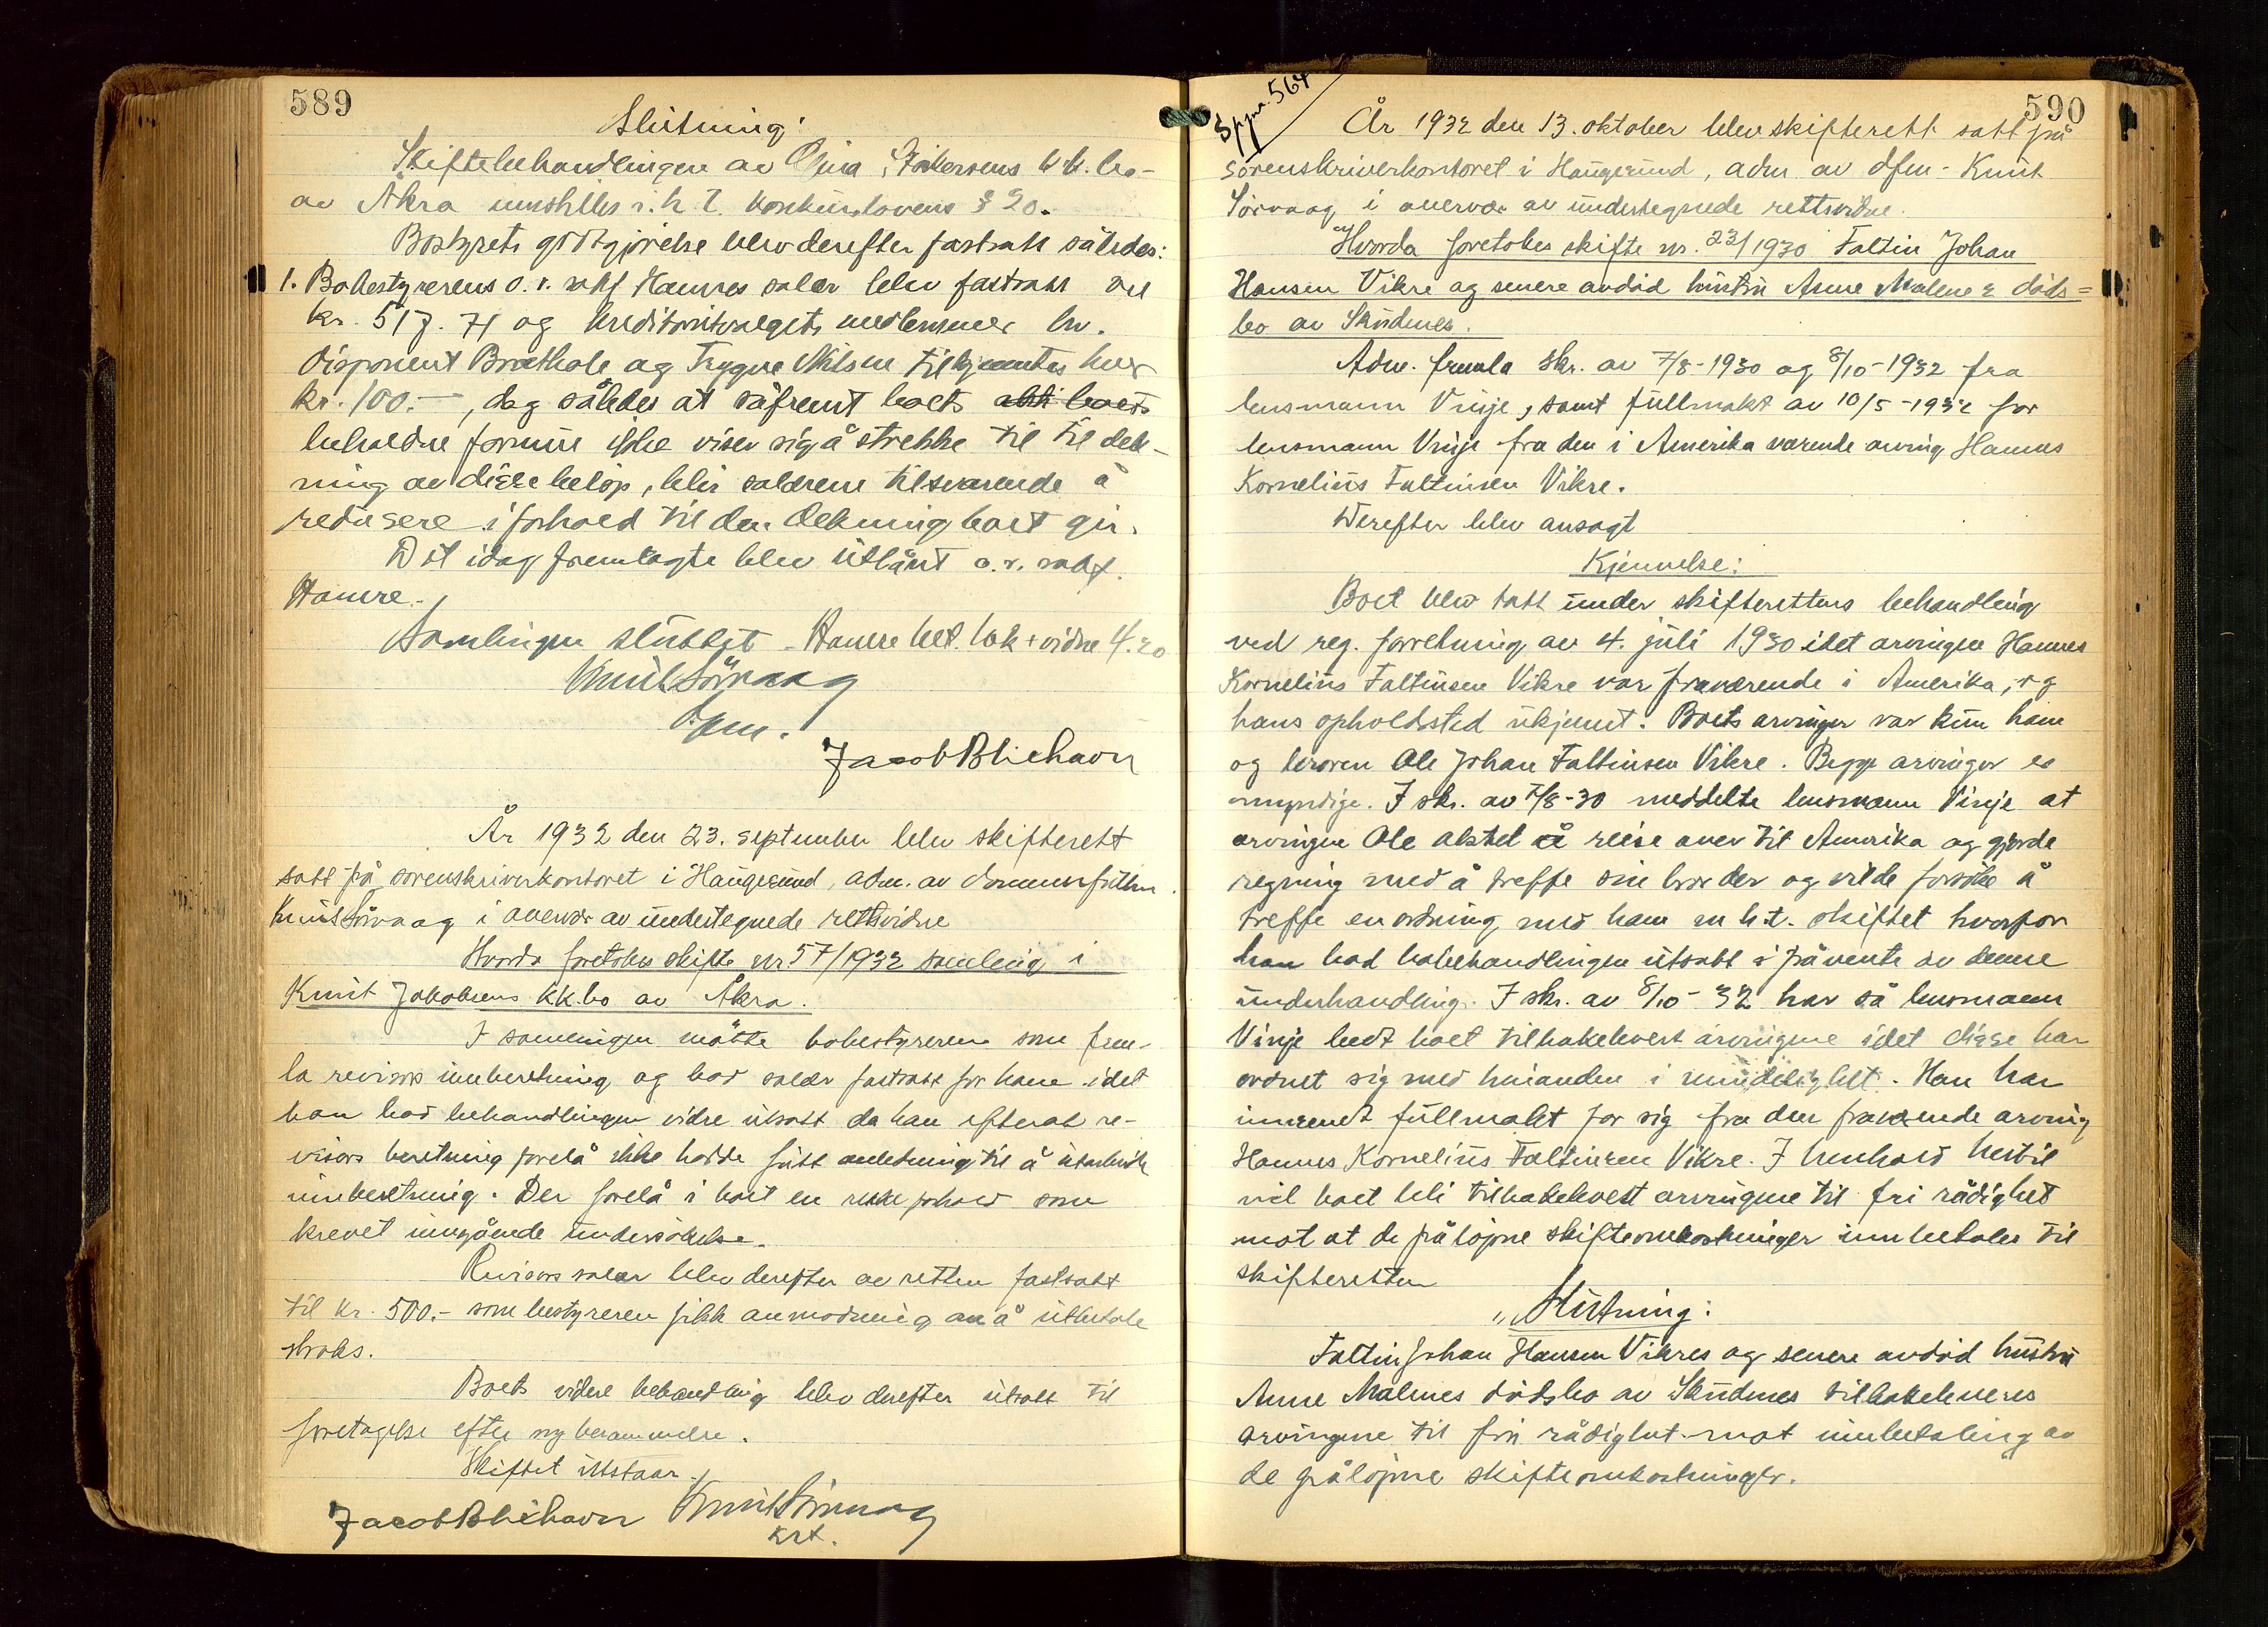 589
Slutning:
Skiftebehandlingen av Gina Falkersens kk. bo
av Åkra innstilles i. h. t. konkurslovens § 20.
Bostyrets godtgjørelse blev derefter fastsatt således:
1. Bobestyrerens o.r. sakf Hamres salær blev fastsatt til
kr. 517.71 og kreditorutvalgets medlemmer hr.
disponent Bratthole og Trygve Nilsen tilkjentes hver
kr. 100.-, dog således at såfremt boets
beholdne formue ikke viser sig å strekke til til dek-
ning av disse beløp, blir salærene tilsvarende å
redusere i forhold til den dekning boet gir.
Det idag fremlagte blev utlånt o.r. sakf.
Hamre.
Samlingen sluttet. Hamre bet. vidne 4.20
Knut Sörvaag
dfm.
Jacob Bliehavn
År 1932 den 23. september blev skifterett
satt på sorenskriverkontoret i Haugesund, adm. av dommerfullm.
Knut Sörvaag i overvær av undertegnede rettsvidne
Hvorda foretokes skifte nr. 57/1932 samling i
Knut Jakobsens kk.bo av Åkra.
I samlingen møtte bobestyreren som frem-
la revisors innberetning og bad salær fastsatt for ham idet
han bad behandlingen videre utsatt da han efterat re-
visors beretning forelå ikke hadde fått anledning til å utarbeide
innberetning. Der forelå i boet en rekke forhold som
krevet inngående undersøkelse.
Revisors salær blev derefter av retten fastsatt
til kr. 500.- som bestyreren fikk anmodning om å utbetale
straks.
Boets videre behandling blev derefter utsatt til
foretagelse efter ny berammelse.
Skiftet utstaar.
Jacob Bliehavn Knut Sörvaag
kst.
590
S pgn. 564
År 1932 den 13. oktober blev skifterett satt på
sorenskriverkontoret i Haugesund, adm. av dfm. Knut
Sørvaag i overvær av undertegnede rettsvidne.
Hvorda foretokes skifte nr. 23/1930 Faltin Johan
Hansen Vikre og senere avdød hustru Anne Malene's døds=
bo av Skudenes.
Adm. fremla skr. av 7/8-1930 og 8/10-1932 fra
lensmann Vinje, samt fullmakt av 10/5-1932 for
lensmann Vinje fra den i Amerika værende arving Hannes
Kornelius Faltinsen Vikre.
Derefter blev avsagt
Kjennelse:
Boet blev tatt under skifterettens behandling
ved reg. forretning av 4. juli 1930 idet arvingen Hannes
Kornelius Faltinsen Vikre var fraværende i Amerika, og
hans opholdsted ukjent. Boets arvinger var kun ham
og broren Ole Johan Faltinsen Vikre. Begge arvinger er
myndige. I skr. av 7/8-30 meddelte lensmann Vinje at
arvingen Ole aktet å reise over til Amerika og gjorde
regning med å treffe sin broder og vilde forsøke å
treffe en ordning med ham m.h.t. skiftet hvorfor
han bad bobehandlingen utsatt i påvente av denne
underhandling. I skr. av 8/10-32 har så lensmann
Vinje bedt boet tilbakelevert arvingene idet disse har
ordnet sig med hinanden i mindelighet. Han har
innsendt fullmakt for sig fra den fraværende arving
Hannes Kornelius Faltinsen Vikre. I henhold hertil
vil boet bli tilbakelevert arvingene til fri rådighet
mot at de påløpne skifteomkostninger innbetales til
skifteretten
"Slutning:
Faltin Johan Hansen Vikres og senere avdød hustru
Anne Malenes dødsbo av Skudenes tilbakeleveres
arvingene til fri rådighet mot innbetaling av
de påløpne skifteomkostninger.